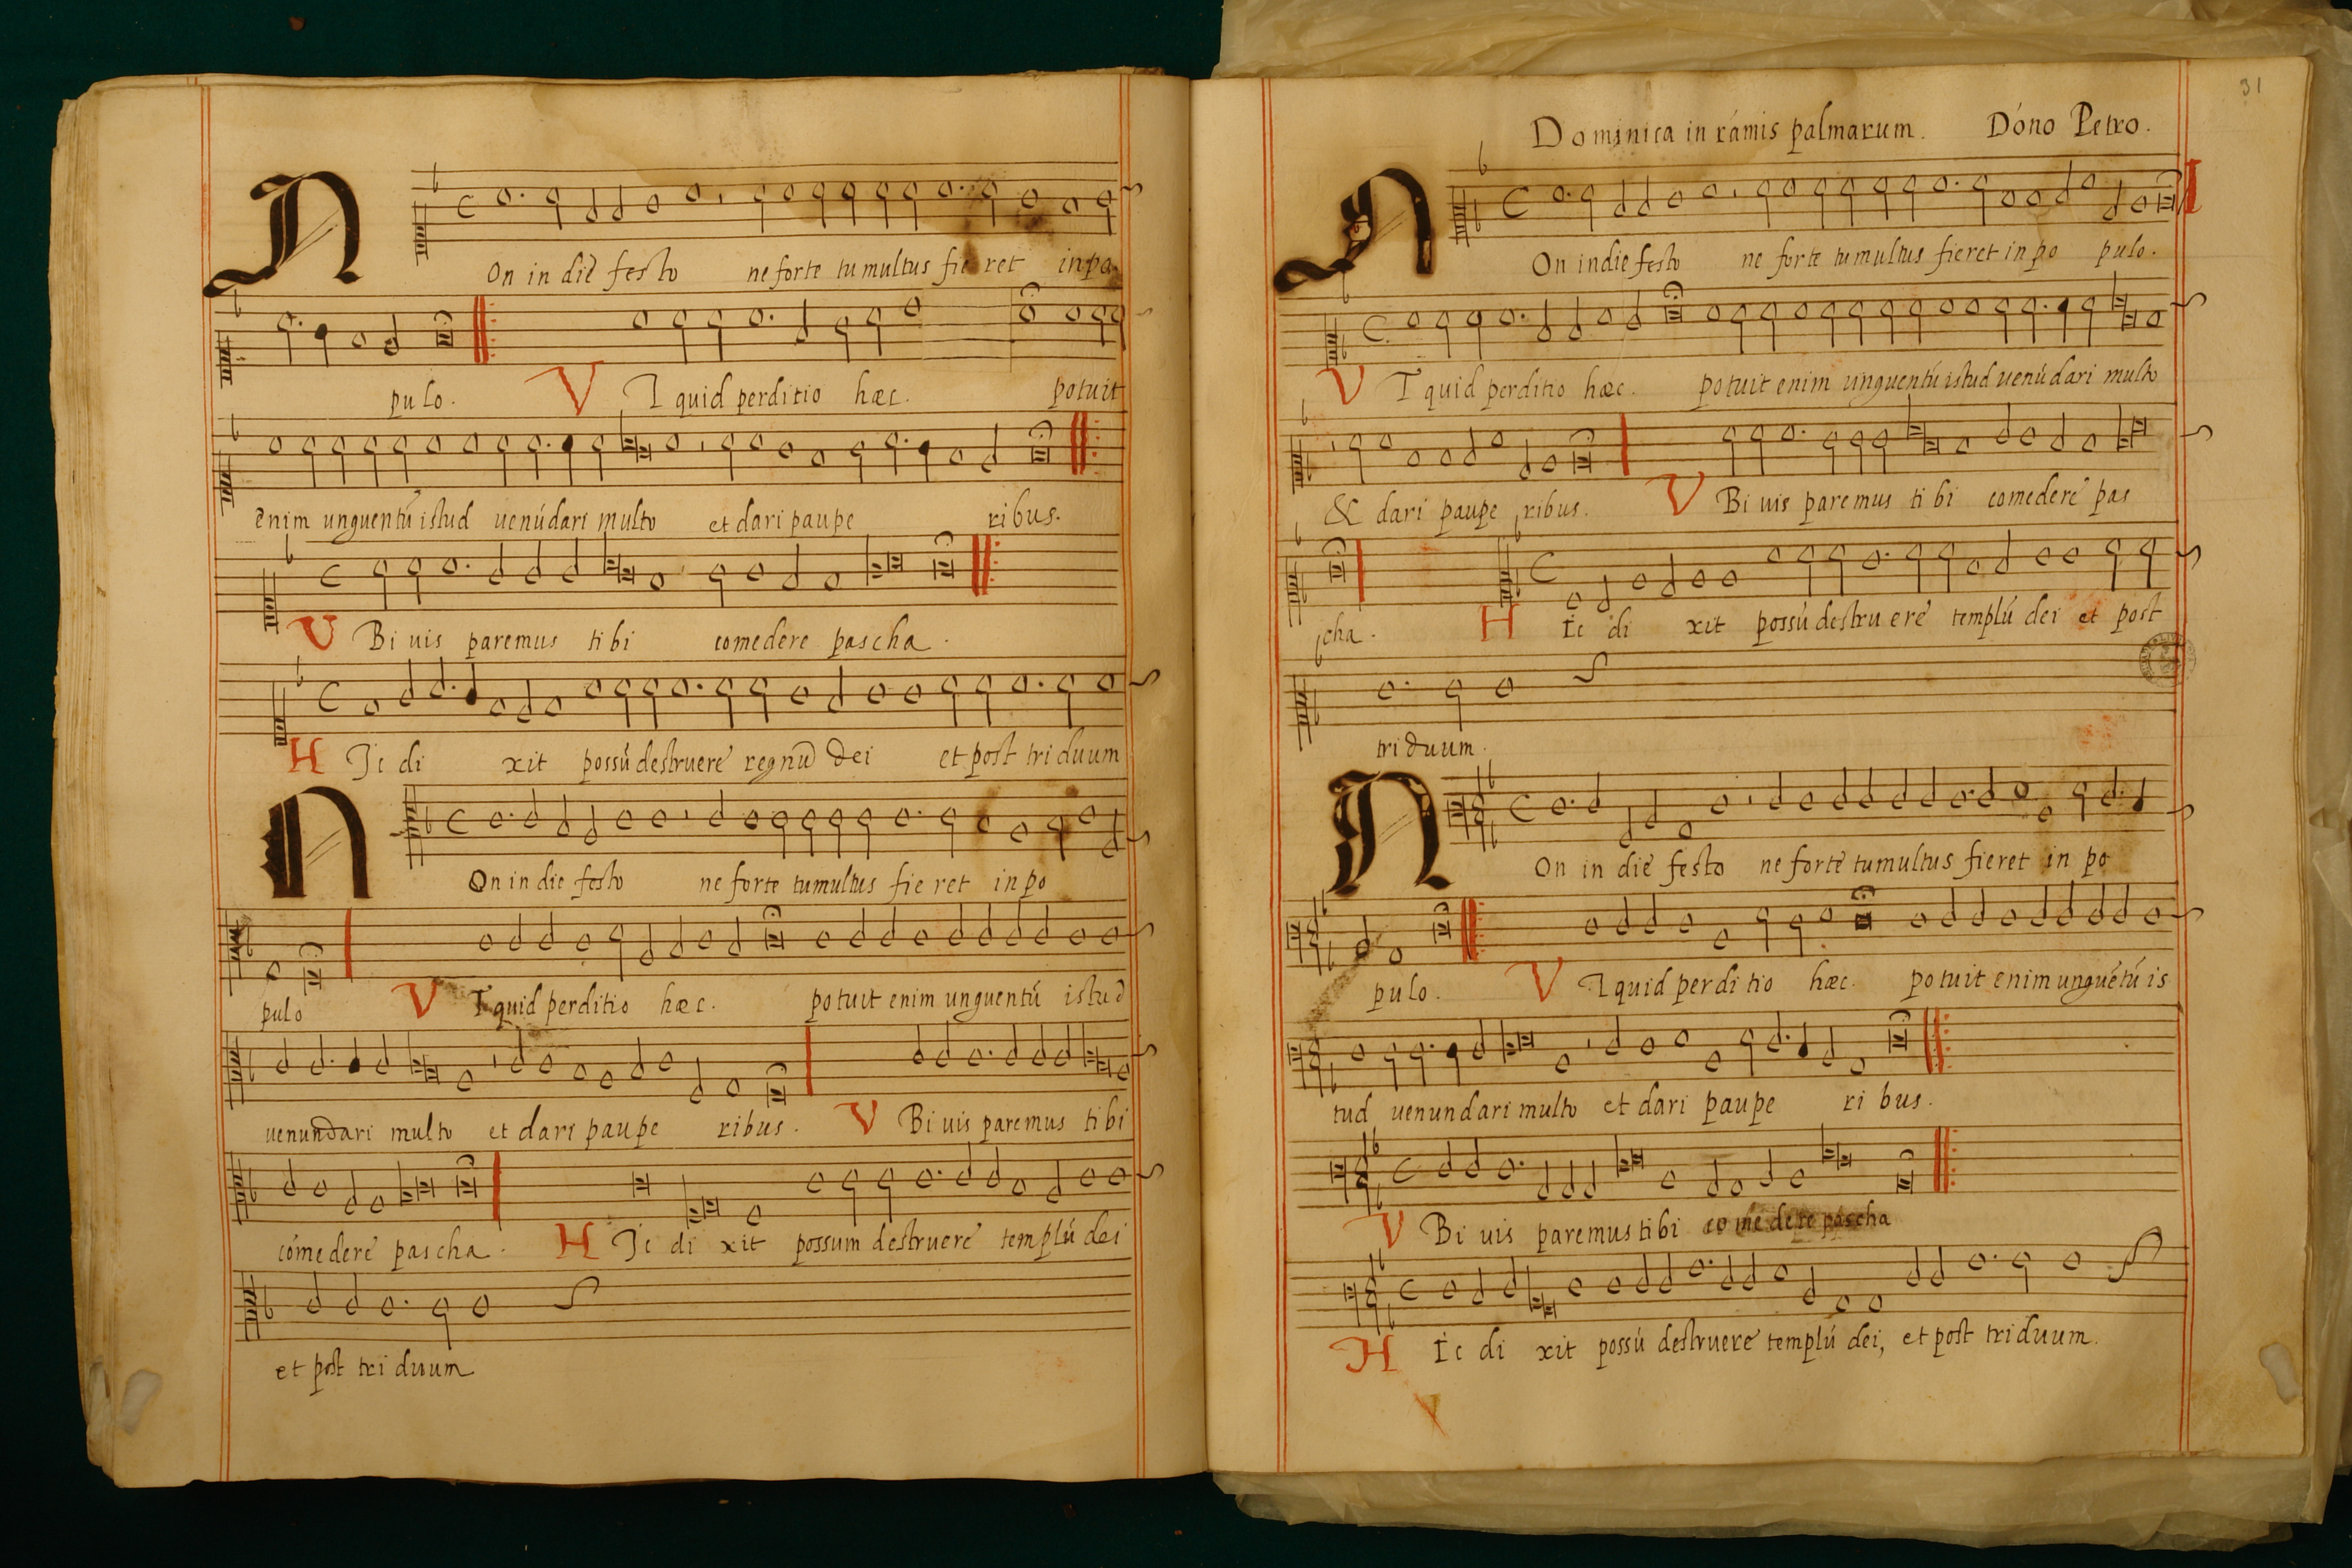 NOn in die festo ne forte tumultus fieret in po
pulo. VT quid perditio hæc. potuit
enim unguentú istud uenúdari multo et dari paupe ribus.
VBi uis paremus tibi comedere pascha.
HIc di xit possú destruere regnú dei et post triduum
NOn in die festo ne forte tumultus fieret in po
pulo VT quid perditio hæc. potuit enim unguentú istud
uenundari multo et dari paupe ribus. VBi uis paremus tibi
cómedere pascha. HIc di xit possum destruere templú dei
et post tri duum
31
Dominica in rámis palmarum. Dóno Petro.
NOn in die festo ne forte tumultus fieret in po pulo.
VT quid perditio hæc. potuit enim unguentú istud uenúdari multo
& dari paupe ribus. VBi uis paremus tibi comedere pas
cha. HIc di xit possú destruere templú dei et post
triduum.
NOn in die festo ne forte tumultus fieret in po
pulo. VT quid perditio hæc. potuit enim unguétú is
tud uenundari multo et dari paupe ribus.
VBi uis paremus tibi comedere páscha
HIc di xit possú destruere templú dei, et post triduum.